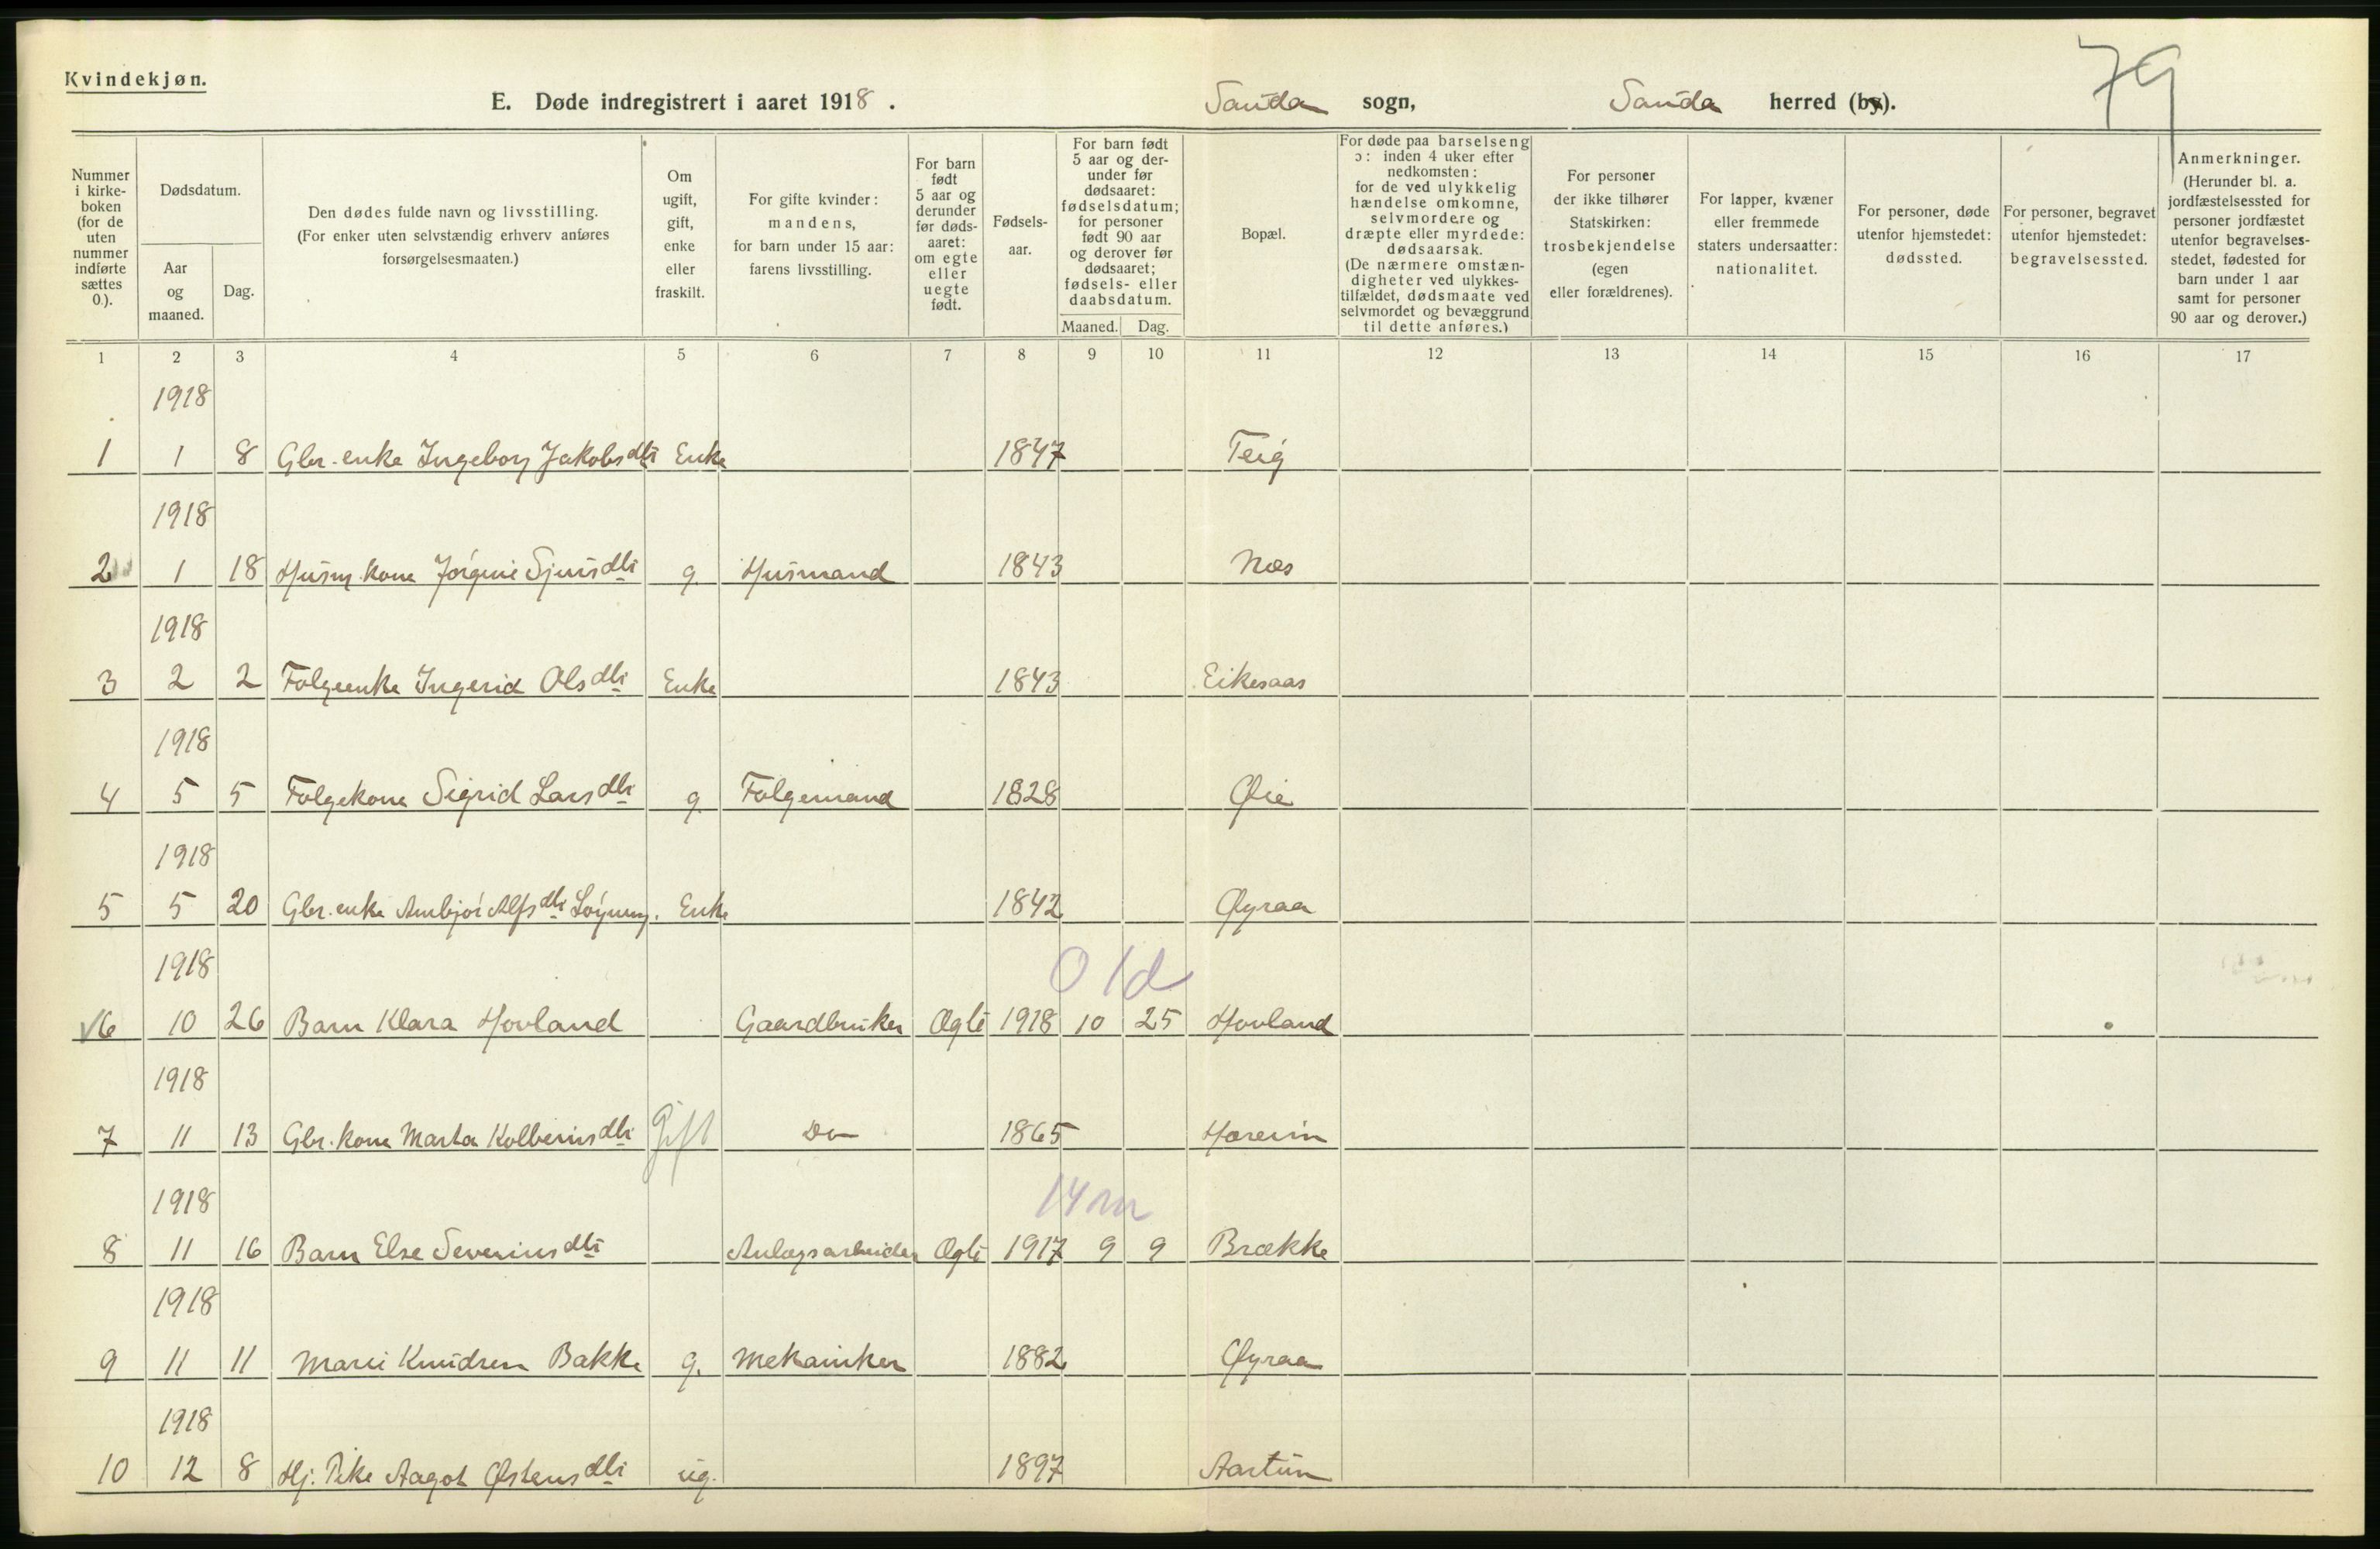 Kvindekjøn.
79
E. Døde indregistrert i aaret 1918. Sauda sogn, Sauda herred (by).
Nummer i kirkeboken (for de uten nummer indførte sættes 0.).
Dødsdatum.
Aar og maaned.
Dag.
Den dødes fulde navn og livsstilling.
(For enker uten selvstændig erhverv anføres forsørgelsesmaaten.)
Om ugift, gift, enke eller fraskilt.
For gifte kvinder: mandens, for barn under 15 aar: farens livsstilling.
For barn født 5 aar og derunder før dødsaaret: om egte eller uegte født.
Fødselsaar.
For barn født 5 aar og derunder før dødsaaret: fødselsdatum; for personer født 90 aar og derover før dødsaaret; fødsels- eller daabsdatum.
Maaned. Dag.
Bopæl.
For døde paa barselseng ɔ: inden 4 uker efter nedkomsten: for de ved ulykkelig hændelse omkomne, selvmordere og dræpte eller myrdede: dødsaarsak. (De nærmere omstændigheter ved ulykkestilfældet, dødsmaate ved selvmordet og bevæggrund til dette anføres.)
For personer der ikke tilhører Statskirken: trosbekjendelse (egen eller forældrenes).
For lapper, kvæner eller fremmede staters undersaatter: nationalitet.
For personer, døde utenfor hjemstedet: dødssted.
For personer, begravet utenfor hjemstedet: begravelsessted.
Anmerkninger. (Herunder bl. a. jordfæstelsessted for personer jordfæstet utenfor begravelsesstedet, fødested for barn under 1 aar samt for personer 90 aar og derover.)
1 2 3 4 5 6 7 8 9 10 11 12 13 14 15 16 17
1918
1 1 8 Gbr. enke Ingeborg Jakobsdtr Enke 1847 Teig
1918
2 1 18 Husm. kone Jørgine Sjursdtr g. Husmand 1843 Næs
1918
3 2 2 Følgeenke Ingerid Olsdtr Enke 1843 Eikesaas
1918
4 5 5 Følgekone Sigrid Larsdtr g. Følgemand 1828 Øie
1918
5 5 20 Gbr. enke Anbjør Alfsdtr Enke 1842 Øyraa
1918 0 1d
6 10 26 Barn Klara Hovland Gaardbruker Ægte 1918 10 25 Hovland
1918
7 11 13 Gbr. kone Marta Kolbeinsdtr Gift Do 1865
1918 14 m
8 11 16 Barn Else Severinsdtr Anlægsarbeider Ægte 1917 9 9 Brække
1918
9 11 11 Marie Knudsen Bakke g. Mekaniker 1882 Øyraa
1918
10 12 8 Hj. Pike Aagot Østensdtr ug. 1897 Aartun